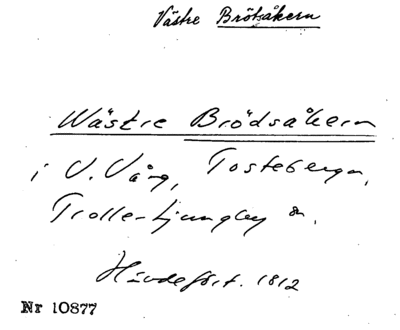 Västre Brötsåkern
Wästre Brödsåkern
i V. Vång, Tosteberga,
Trolle-Ljungby sn.
Hävdeført. 1812
Nr 10877